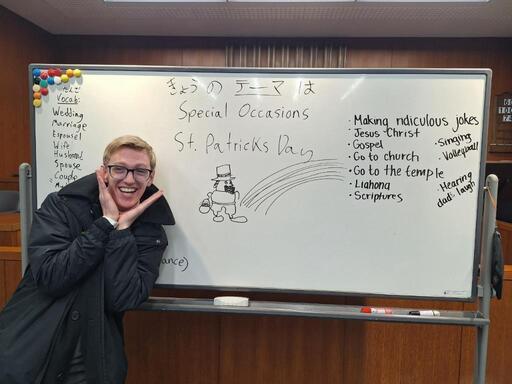 きょうの テーマは
Special Occasions
St. Patricks Day
たんご
Vocab:
Wedding
Marriage
Espousel
Wife
Husband
Spouse
Couple
• Making ridiculous jokes
• Jesus Christ
• Gospel
• Go to church
• Go to the temple
• Liahona
• Scriptures
• Singing
• Volleyball
• Hearing
dad laugh
ance)